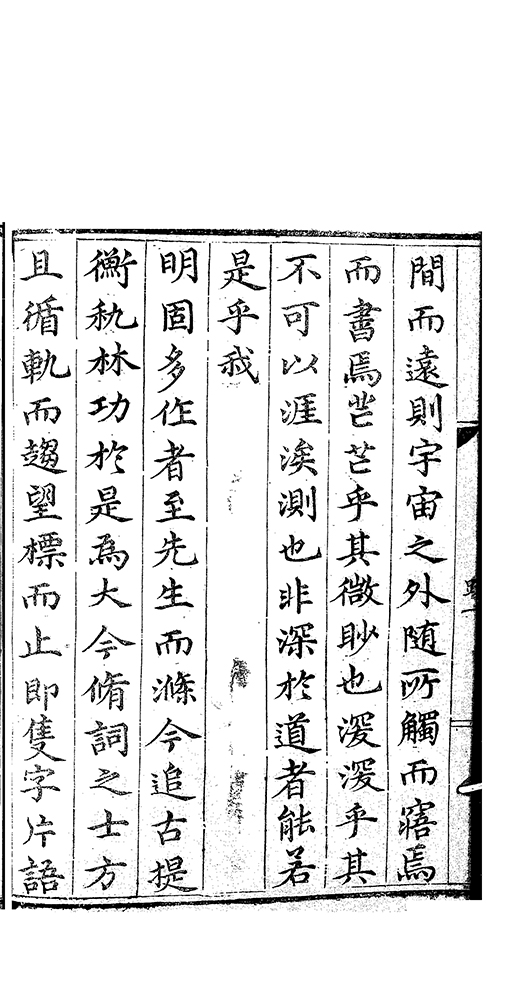 間而遠則宇宙之外随所觸而寤焉
而書焉芒芒乎其微眇也漫漫乎其
不可以涯涘測也非深於道者能若
是乎哉
明固多作者至先生而滌今追古提
衡秇林功於是為大今脩詞之士方
且循軌而趨望標而止即隻字片語